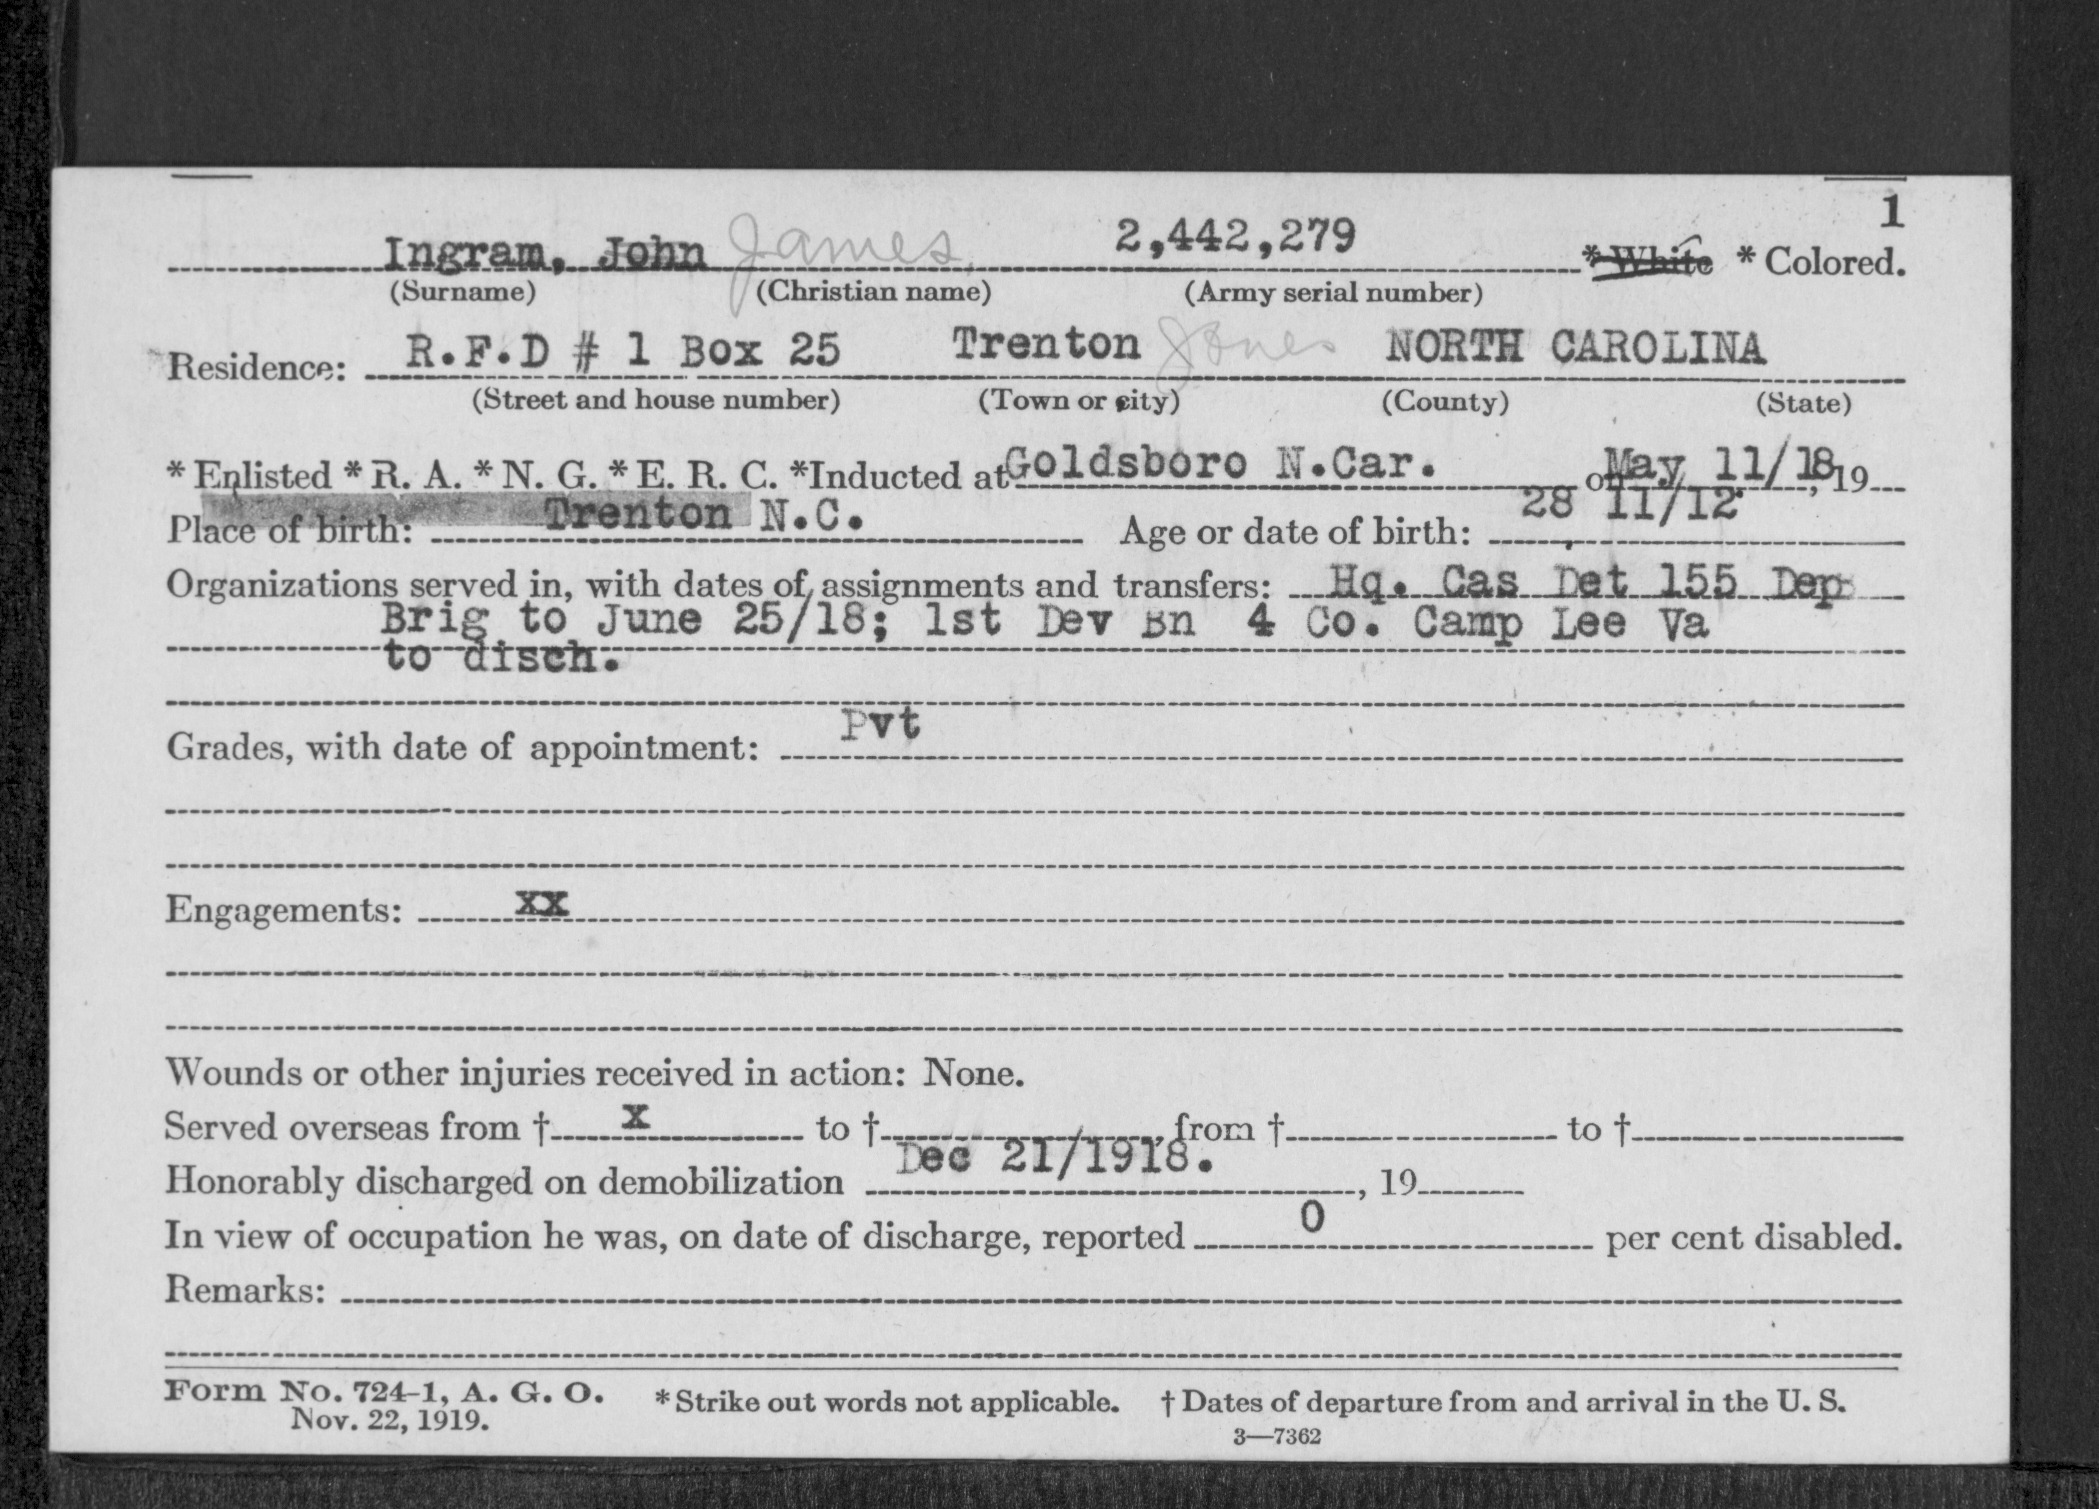 1
Ingram, John James 2,442,279 * White * Colored.
(Surname) (Christian name) (Army serial number)
Residence: R.F.D # 1 Box 25 Trenton Jones NORTH CAROLINA
(Street and house number) (Town or city) (County) (State)
* Enlisted * R. A. * N. G. * E. R. C. *Inducted at Goldsboro N.Car. on May 11/18, 19
Place of birth: Trenton N.C. Age or date of birth: 28 11/12
Organizations served in, with dates of assignments and transfers: Hq. Cas Det 155 Dep
Brig to June 25/18; 1st Dev Bn 4 Co. Camp Lee Va
to disch.
Grades, with date of appointment: Pvt
Engagements: xx
Wounds or other injuries received in action: None.
Served overseas from † x to † , from † to †
Honorably discharged on demobilization Dec 21/1918. , 19
In view of occupation he was, on date of discharge, reported 0 per cent disabled.
Remarks:
Form No. 724-1, A. G. O. * Strike out words not applicable. † Dates of departure from and arrival in the U. S.
Nov. 22, 1919.
3—7362